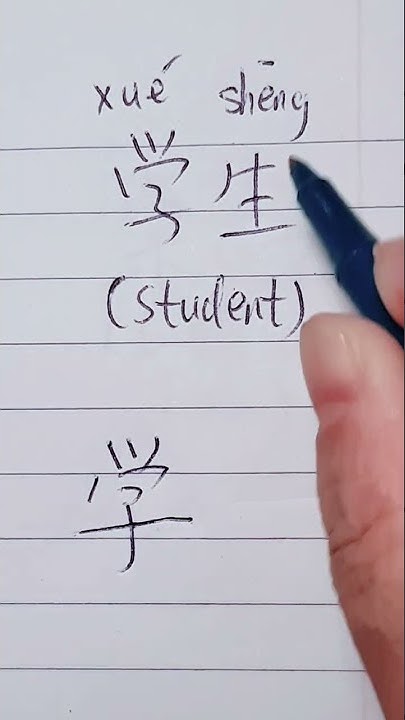 xué shēng
学生
(student)
学